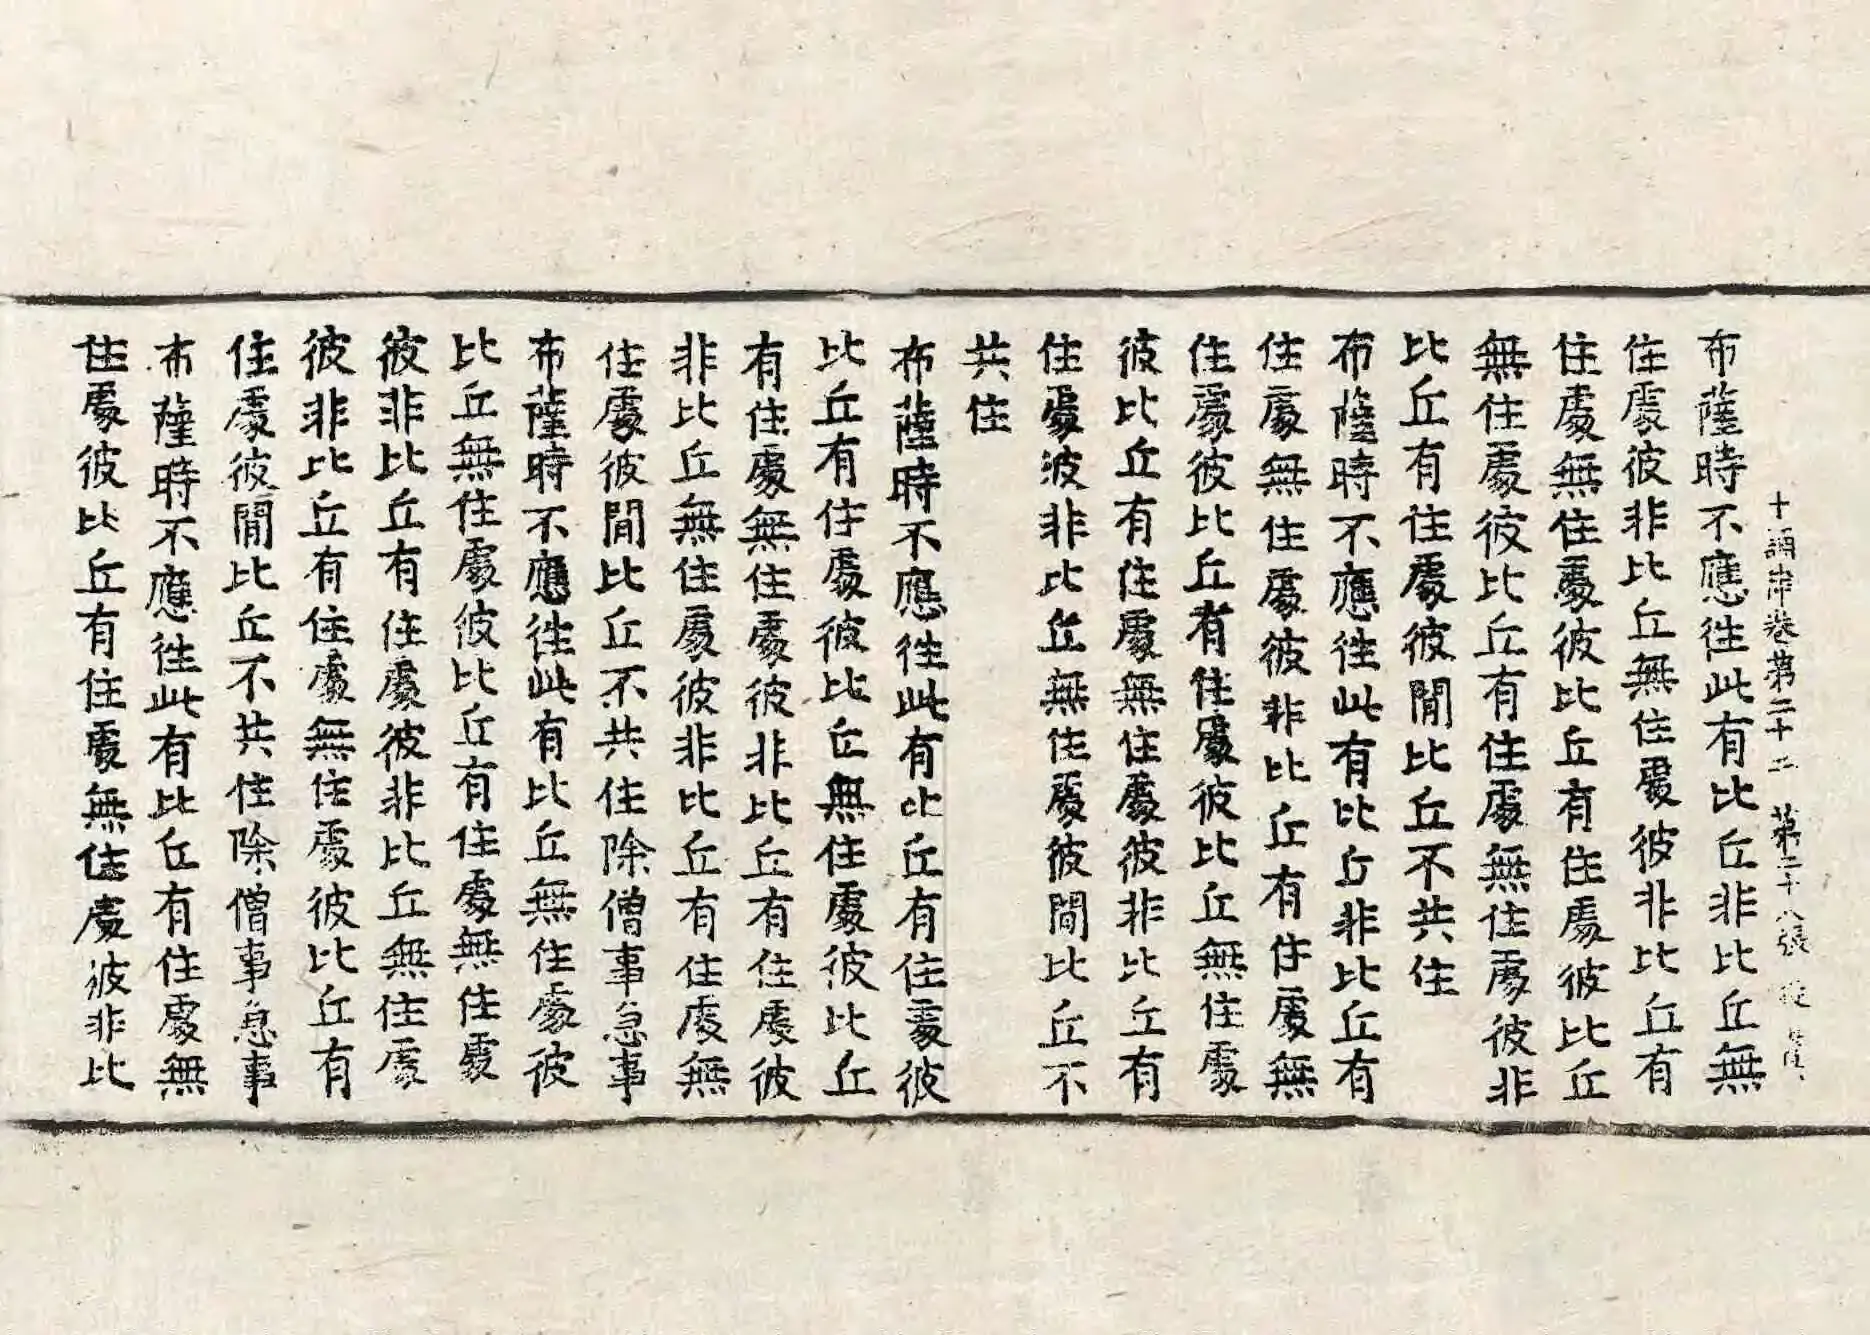 十誦律卷第二十二 第二十八張
布薩時不應往此有比丘非比丘無
住處彼非比丘無住處彼非比丘有
住處無住處彼比丘有住處彼比丘
無住處彼比丘有住處無住處彼非
比丘有住處彼閒比丘不共住
布薩時不應往此有比丘非比丘有
住處無住處彼非比丘有住處無
住處彼比丘有住處彼比丘無住處
彼比丘有住處無住處彼非比丘有
住處彼非比丘無住處彼間比丘不
共住
布薩時不應往此有比丘有住處彼
比丘有住處彼比丘無住處彼比丘
有住處無住處彼非比丘有住處彼
非比丘無住處彼非比丘有住處無
住處彼閒比丘不共住除僧事急事
布薩時不應往此有比丘無住處彼
比丘無住處彼比丘有住處無住處
彼非比丘有住處彼非比丘無住處
彼非比丘有住處無住處彼比丘有
住處彼閒比丘不共住除僧事急事
布薩時不應往此有比丘有住處無
住處彼比丘有住處無住處彼非比